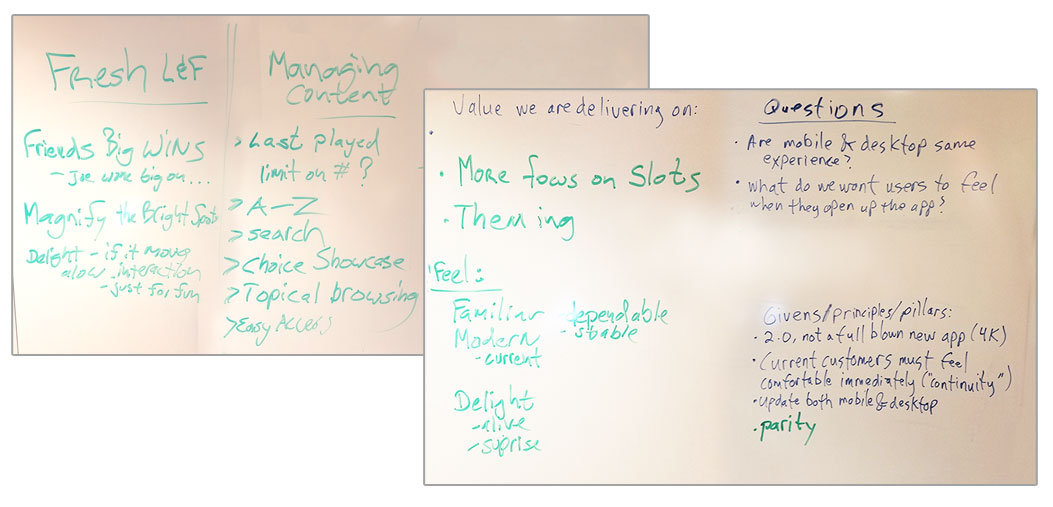 Fresh L&F
Friends Big WINS
- Joe won big on...
Magnify the Bright Spots
Delight - if it move
alow interaction
- just for fun
Managing
Content
> Last played
limit on # ?
> A - Z
> search
> Choice Showcase
> Topical browsing
> Easy Access
Value we are delivering on:
• More focus on Slots
• Theming
Feel:
Familiar - dependable
- stable
Modern
- current
Delight
- alive
- suprise
Questions
• Are mobile & desktop same
experience?
• What do we want users to feel
when they open up the app?
Givens/principles/pillars:
• 2.0, not a full blown new app (4K)
• Current customers must feel
comfortable immediately ("continuity")
• Update both mobile & desktop
• parity